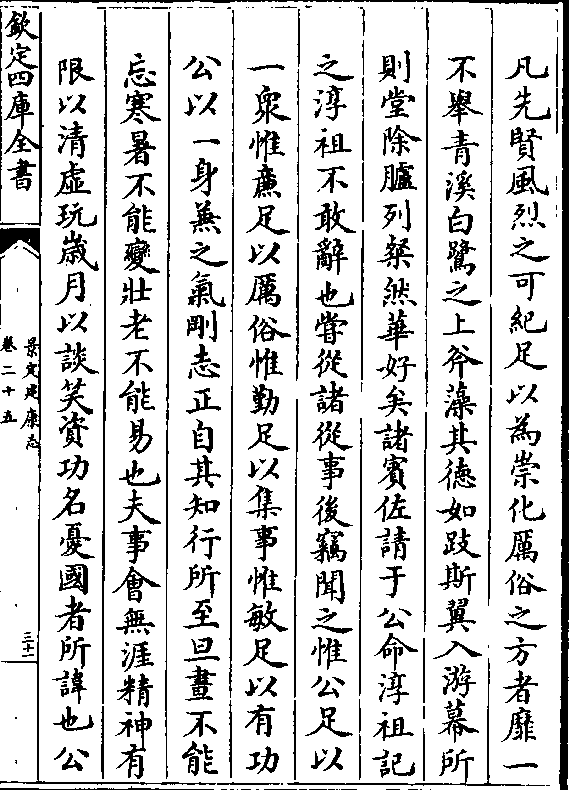 凡先賢風烈之可紀足以為崇化厲俗之方者靡一
不舉青溪白鷺之上斧藻其徳如跂斯翼入游幕所
則堂除臚列粲然華好矣諸賓佐請于公命淳祖記
之淳祖不敢辭也嘗從諸從事後竊聞之惟公足以
一衆惟亷足以厲俗惟勤足以集事惟敏足以有功
公以一身兼之氣剛志正自其知行所至旦晝不能
忘寒暑不能變壯老不能易也夫事會無涯精神有
限以清虛玩歲月以談笑資功名憂國者所諱也公
欽定四庫全書
景定建康志
卷二十五
三十二